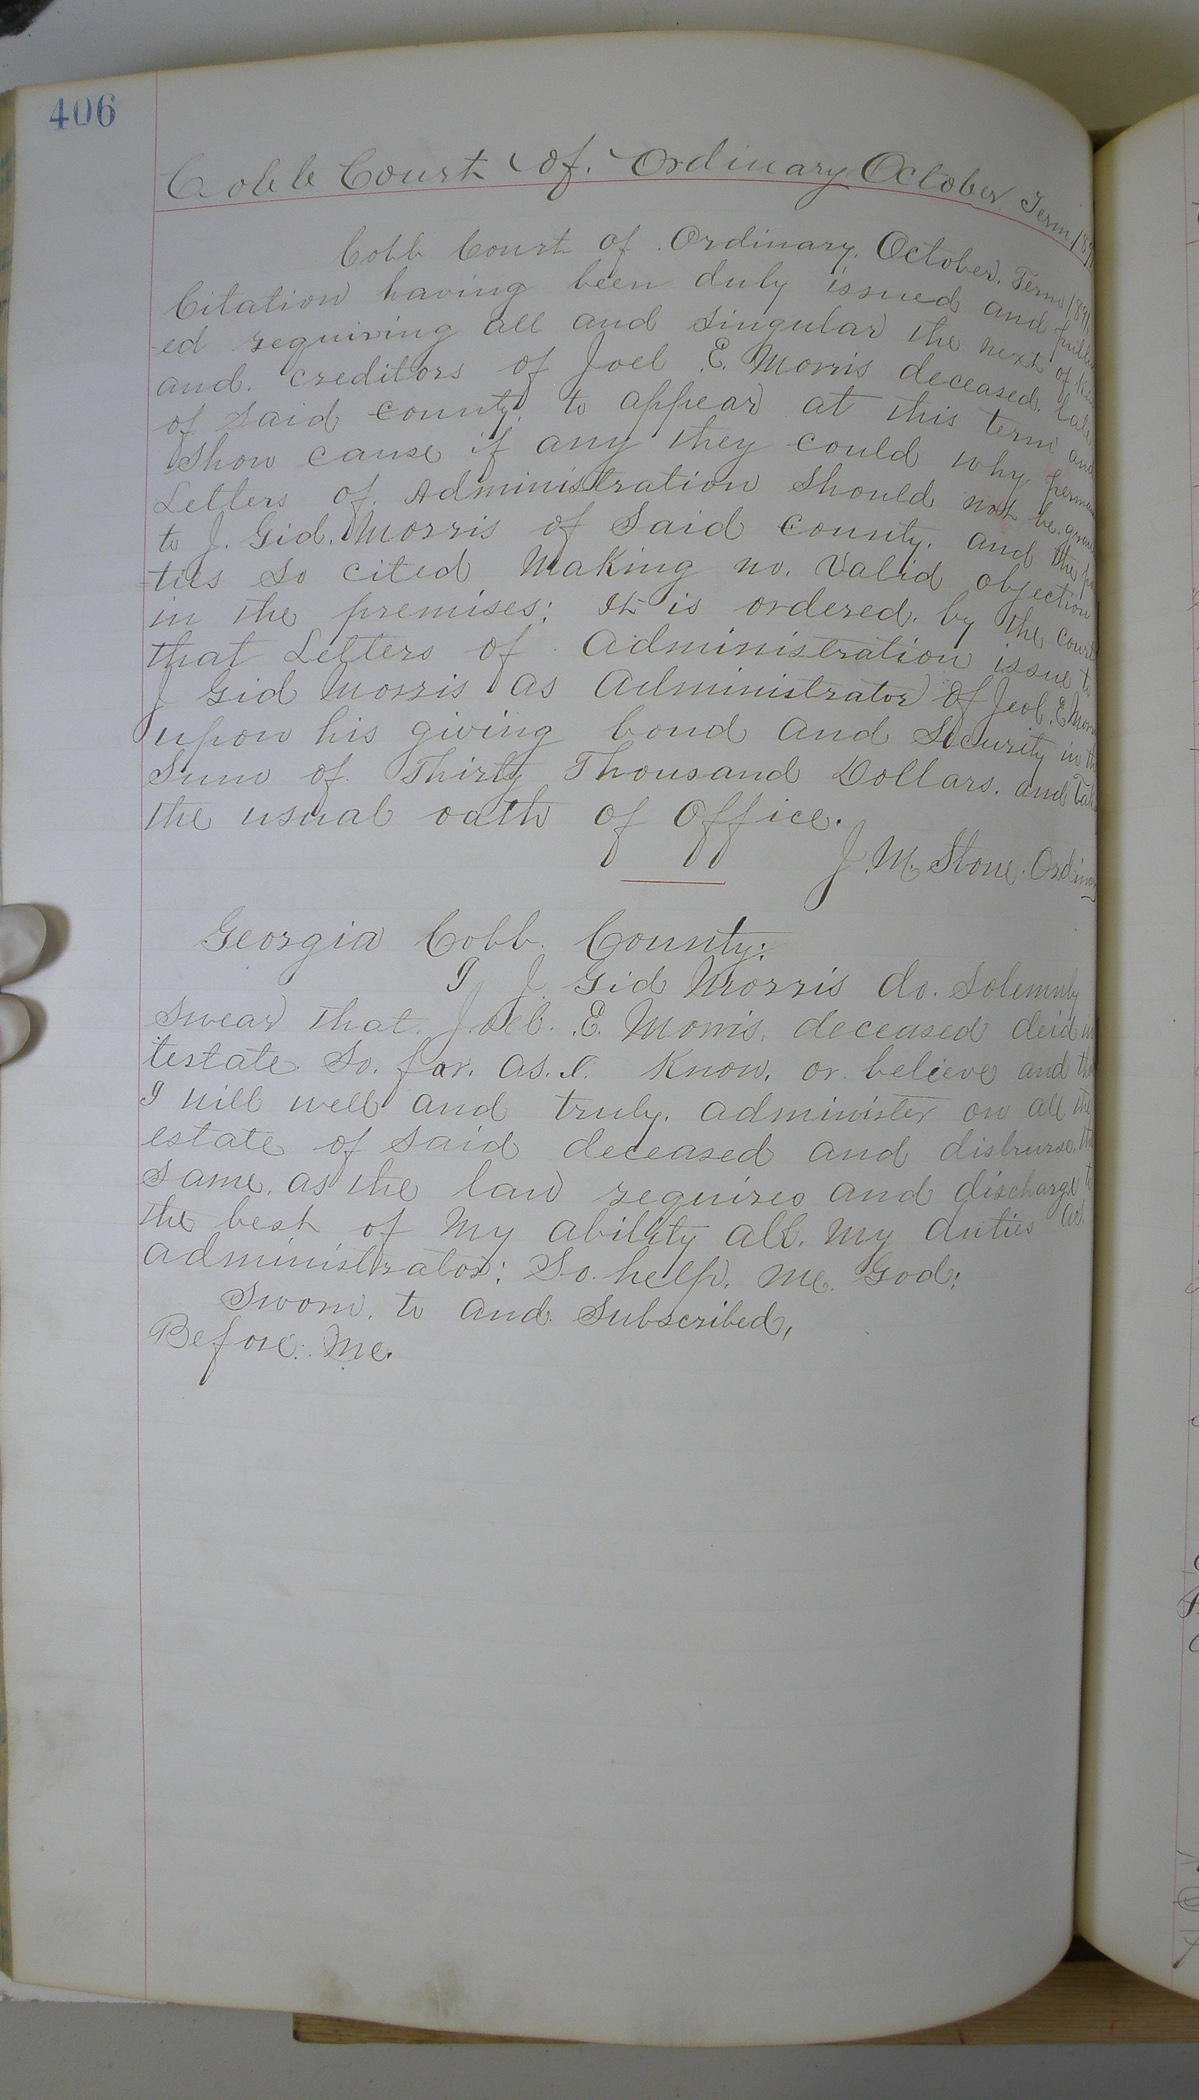 406
Cobb Court of. Ordinary October Term 189
Cobb Court of. Ordinary. October. Term 1891.
Citation having been duly issued and publi
-ed requiring all and singular the next of Kin
and. creditors of Joel E. Morris deceased. late
of said county. to appear at this term and
Show cause if any they could why perman
Letters of. Administration Should not be. gran
to J. Gid. Morris of Said county. and the par
-ties So cited Making no. Valid objection
in the premises; It is ordered. by the court
that Letters of. Administration issue to
J Gid Morris as Administrator of Jeol. E Morri
upon his giving bond and Security in the
Sum of. Thirty Thousand Dollars. and Tak
the usual oath of Office.
J. M. Stone. Ordinary
Georgia Cobb. County:
I J Gid Morris do. Solemnly
swear that. Joel. E. Morris. deceased deid in
testate. So. far. as. I. Know, or believe and tha
I will well and truly. administer on all the
estate of said deceased and disburse. the
Same. as the law requires and discharge to
the best of My ability all. my duties as
administrator: So. help. me. God:
Sworn. to and. Subscribed,
Before. Me.